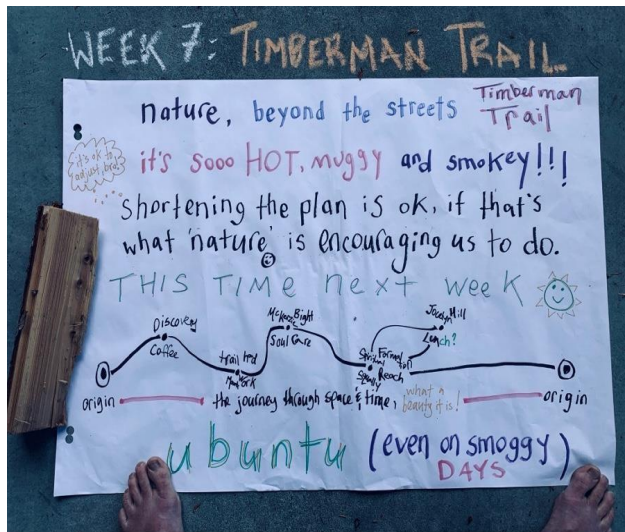 WEEK 7: TIMBERMAN TRAIL
nature, beyond the streets
Timberman
Trail
it's ok to
adjust, bro!
it's sooo HOT, muggy and smokey!!!
shortening the plan is ok, if that's
what 'nature' is encouraging us to do.
THIS TIME next week
Discovery
Coffee
trail hed
McKenzie Bight
Soul Care
Jocelyn Hill
Lunch?
Spiritual Formation
Reach
origin
the journey through space & time,
what a
beauty it is!
origin
ubuntu (even on smoggy)
DAYS